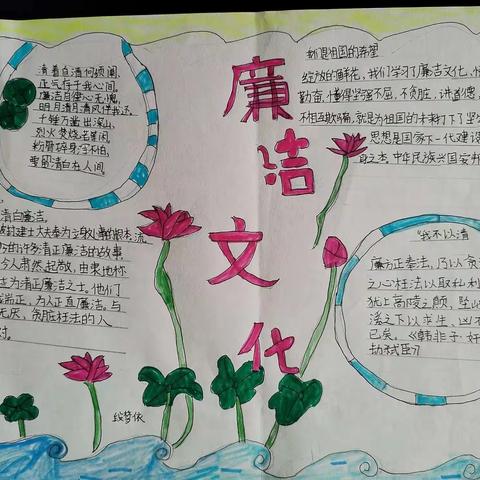 廉洁文化
清者自清何须闹,
正气存于我心间,
廉洁自律心无愧,
明月清风伴我还。
千锤万凿出深山,
烈火焚烧若等闲,
粉骨碎身浑不怕,
要留清白在人间。
清白廉洁。
的许多清正廉洁的故事,
令人肃然起敬,由衷地怀
志为清正廉洁之士。他们
端正,为人正直廉洁。与
无厌、贪脏枉法的人
我们是祖国的希望
绽放的鲜花,我们学习了廉洁文化,
勤奋,懂得坚强不屈,不贪脏,讲道德,
不相互欺骗,就是为祖国的未来打下了坚
思想是国家下一代建设
自立杰,中华民族兴国安邦
“我不以清
廉方正奉法,乃以贪
之心枉法以取私利
犹上高陵之颠,坠
溪之下以求生,
已矣。《韩非子·奸
劫弑臣》